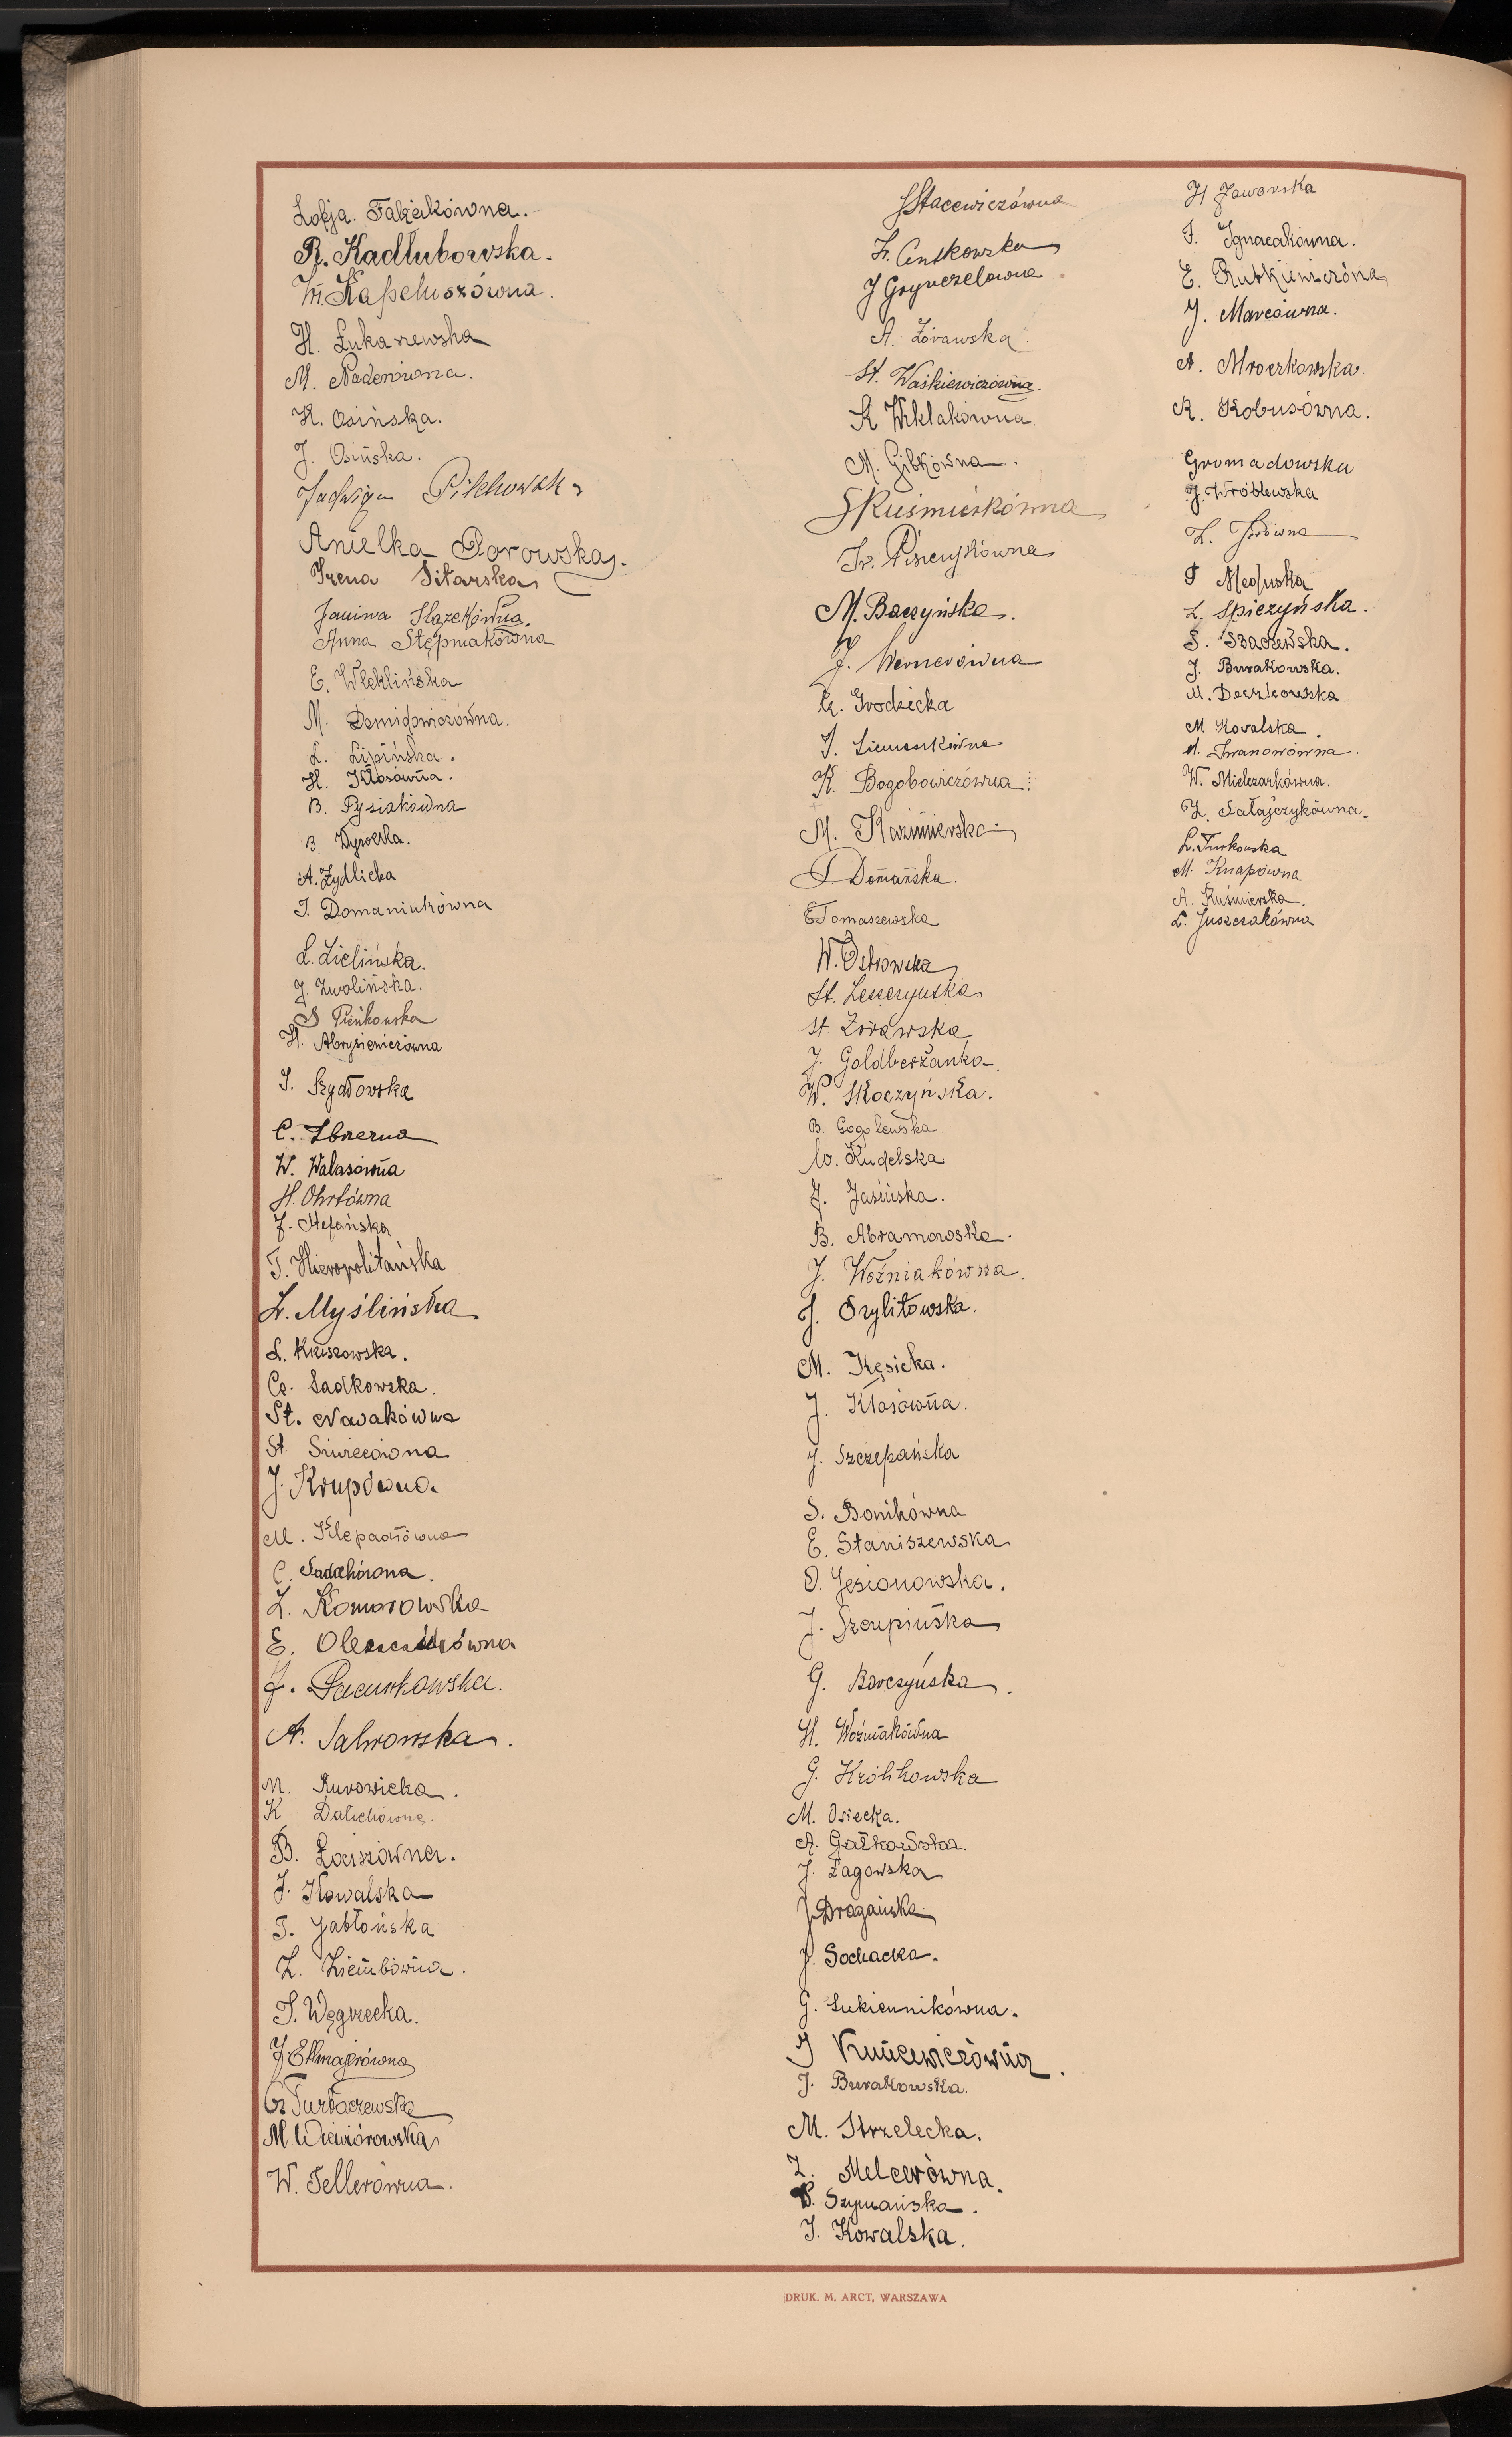 Zofja. Falzjakówna.
R. Kadłubowska.
W. Kapeluszówna.
H. Łukaszewska
M. Nadenówna.
H. Osińska.
J. Osińska.
Jadwiga Pilchowska
Anielka Borowska.
Irena Sitarska
Janina Ślazekówna.
Anna Stępniakówna
E. Wleklińska
M. Demidowiczówna.
L. Lipińska.
H. Kłosówna.
B. Pysiakówna
B. Wysocka.
A. Żydlicka
J. Domaniukówna
L. Zielińska.
J. Zwolińska.
S Pieńkowska
H. Abrysiewiczówna
J. Szydłowska
C. Zbrzezna
W. Walasówna
H. Ohrtówna
J. Stefańska
T. Hieropolitańska
Z. Myślińska.
L. Kruszowska.
Cz. Sadkowska.
St. Nowakówna
St Siwcówna
J. Krupówna.
M. Klepaczówna
C. Sadochówna.
Z. Komorowska
E. Oleszczukówna
J. Pacurkowska.
A. Salwowska.
M. Rurowicka.
K Dalichówna.
B. Łaiszówna.
J. Kowalska
T. Jabłońska
Z. Ziembówna.
J. Węgrzecka.
J. Ettmajerówna
G. Turłaczewska
M. Wiewiórowska
W. Tellerówna.
S Stacewiczówna
Z. Centkowska
J Grynczelówna
A. Żórawska.
St. Waśkiewiczówna.
K Wiklakówna
M. Gibkówna.
S Kuśmierkówna
Ir. Piszczykówna
M. Baczyńska.
J. Wernerówna
G. Grodzicka
J. Ziemaszkówna
K. Bogobowiczówna.
M. Kazimierska
J Domańska.
E Tomaszewska
W. Ostrowska
St. Leszczyńska
St. Żórawska
J. Goldberżanka.
W. Skoczyńska.
B. Gogolewska.
W. Kudelska
J. Jasińska.
B. Abramowska.
J. Woźniakówna.
J. Szylitowska.
M. Kęsicka.
J. Kłosówna.
J. Szczepańska
S. Bonikówna
E. Staniszewska
O. Jesionowska.
J. Szczupińska
G. Barczyńska.
H. Woźniakówna
G. Królikowska
M. Osiecka.
A. Gałkowska.
J. Łagowska
J Dragańska
J. Sochacka.
G. Sukiennikówna.
J Kuncewiczówna.
J. Burakowska.
M. Strzelecka.
Z. Melcerówna.
S. Szymańska.
J. Kowalska.
H Jaworska
J. Ignacakówna.
E. Rutkiewiczówna
J. Marcówna.
A. Mroczkowska.
K. Kobusówna.
Gromadowska
J. Wróblewska
Z. Jerówna
J Meduska
Z. Spiczyńska.
S. Szaczewska.
J. Burakowska.
M. Daszkowska
M Kowalska.
M. Iwanowówna.
W. Mielczarkówna.
Z. Satajczykówna.
L. Turkowska
M. Knapówna
A. Kuśmierska.
L. Juszczakówna
DRUK. M. ARCT, WARSZAWA